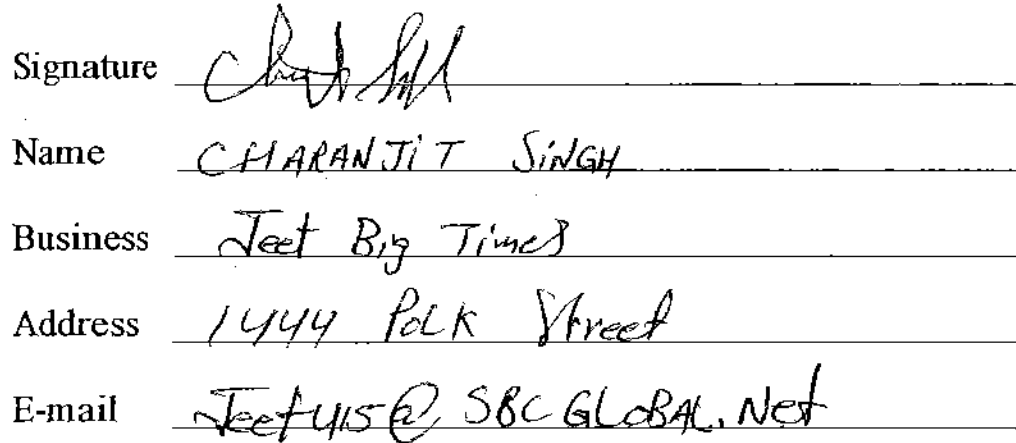 Signature
Name CHARANJIT SiNGH
Business Jeet Big Times
Address 1444 PoLK Street
E-mail Jeet415@SBCGLoBAL.Net